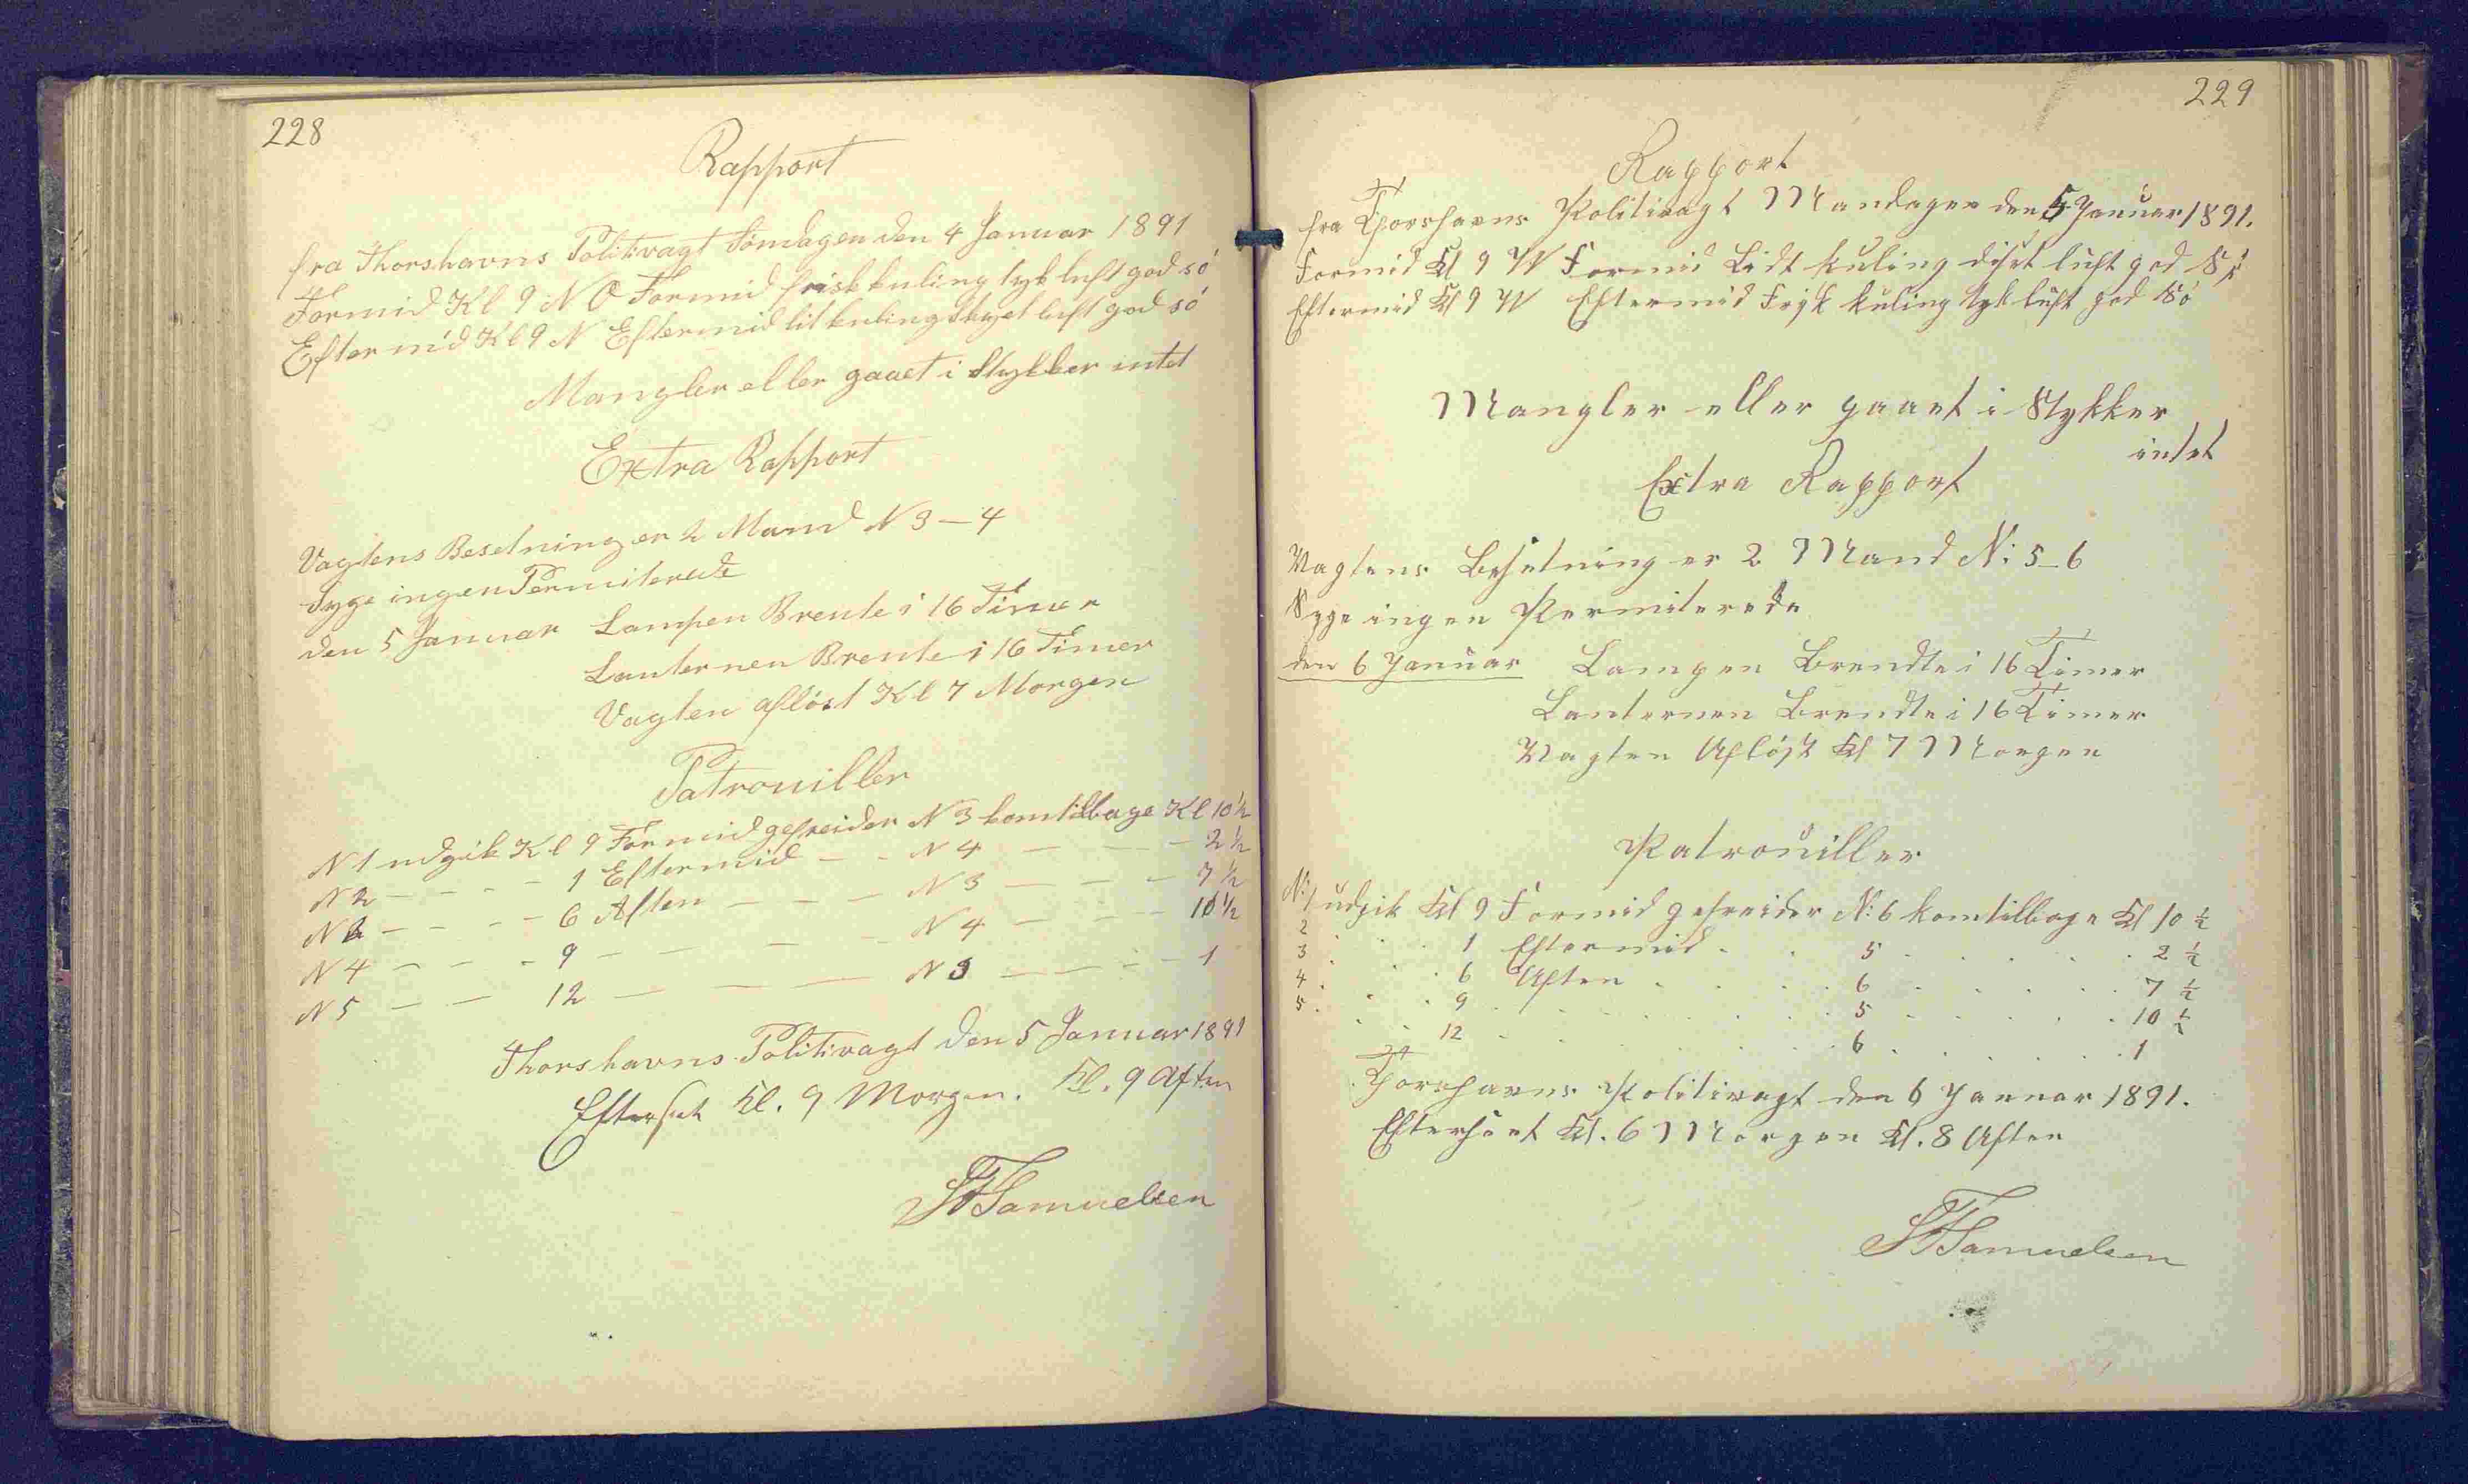 228
Rapport
fra Thorshavns Politivagt Søndagen den 4 Januar 1891
Formid Kl 9 NO Formid frisk kuling tyk luft god sö
Eftermid Kl 9 N Eftermid lit kuling skyet luft god sö
Mangler eller gaaet i Stykker intet
Extra Rapport
Vagtens Besetning er 2 Mand N 3 – 4
Syge ingen Permiterede
den 5 Januar Lampen Brente i 16 Timer
Lanternen Brente i 16 Timer
Vagten aflöst Kl 7 Morgen
Patrouiller
N 1 udgik Kl 9 Formid gefreider N 3 kom tilbage Kl 10½
N 2 – – – – 1 Eftermid – – N 4 – – – – 2½
N 3 – – – – 6 Aften – – – N 3 – – – – 7½
N 4 – – – – 9 – – – – N 4 – – – – 10½
N 5 – – – 12 – – – – N 3 – – – – 1
Thorshavns Politivagt den 5 Januar 1891
Efterset Kl. 9 Morgen. Kl. 9 Aften
Samuelsen
229
Rapport
fra Thorshavns Politivagt Mandagen den 5 Januar 1891.
Formid Kl 9 W Formid Lidt kuling diset luft god Sö
Eftermid Kl 9 W Eftermid Frisk kuling tyk luft god Sö
Mangler eller gaaet i Stykker
intet
Extra Rapport
Vagtens Besetning er 2 Mand N: 5–6
Syge ingen Permiterede
den 6 Januar Lampen Brendte i 16 Timer
Lanternen Brendte i 16 Timer
Vagten Aflöst Kl 7 Morgen
Patrouiller
N: 1 udgik Kl 9 Formid gefreider N: 6 kom tilbage Kl 10 ½
2 . . . 1 Eftermid . . 5 . . . . . 2 ½
3 . . . 6 Aften . . . . 6 . . . . . 7 ½
4 . . . 9 . . . . . . . 5 . . . . . 10 ½
5 . . . 12 . . . . . . . 6 . . . . . 1
Thorshavns Politivagt den 6 Januar 1891.
Efterseet Kl. 6 Morgen Kl. 8 Aften
Samuelsen